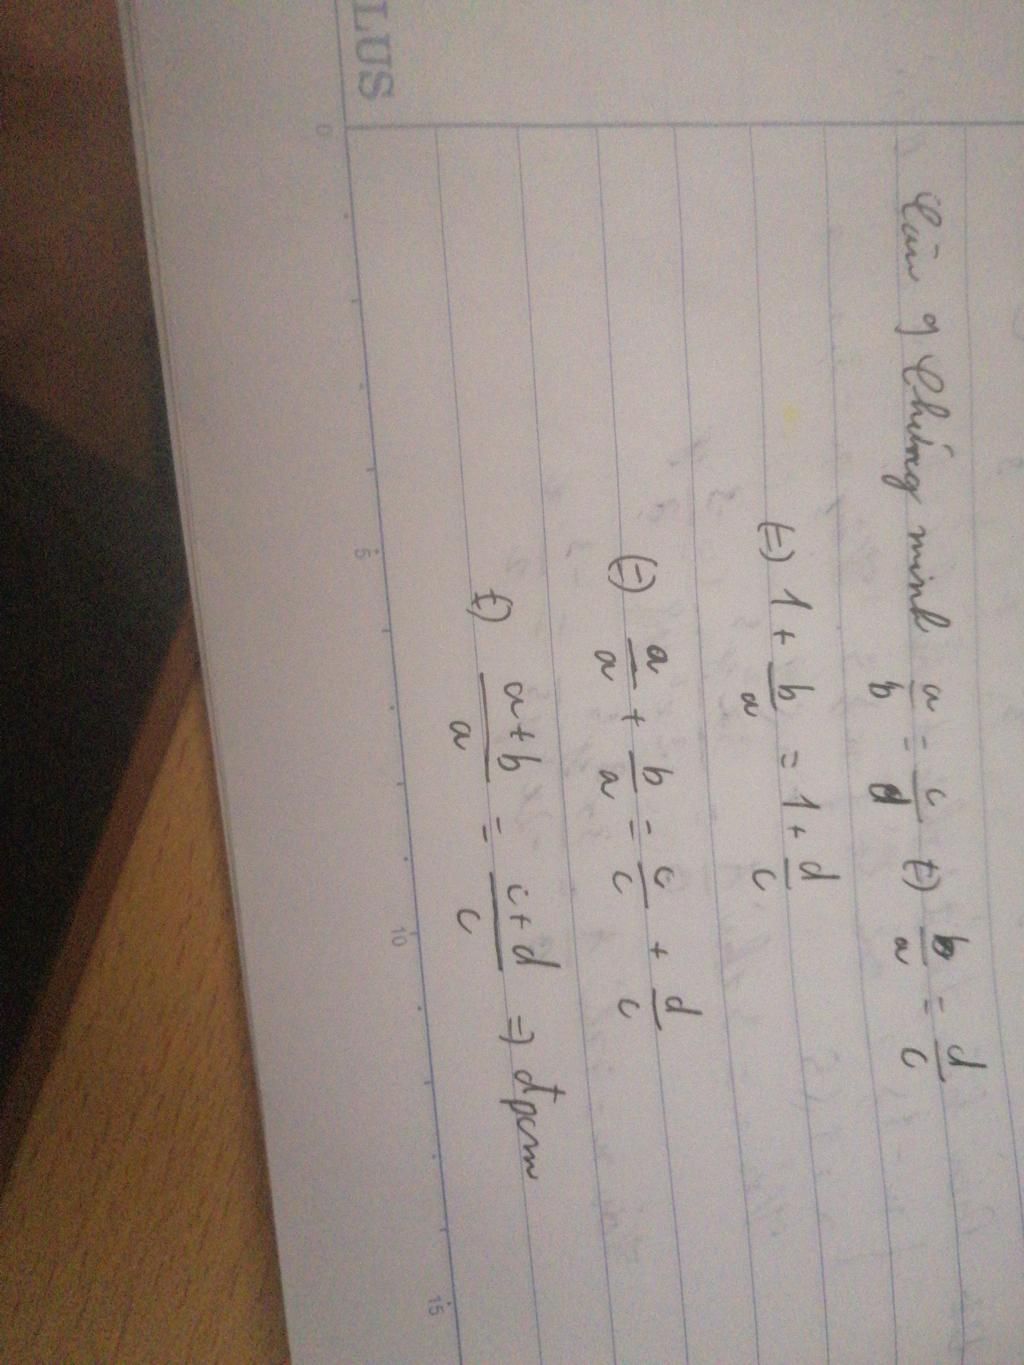 LUS
Câu 9 Chứng minh a/b = c/d (=) b/a = d/c
(=) 1 + b/a = 1 + d/c
(=) a/a + b/a = c/c + d/c
(=) a+b/a = c+d/c => đpcm
0 5 10 15